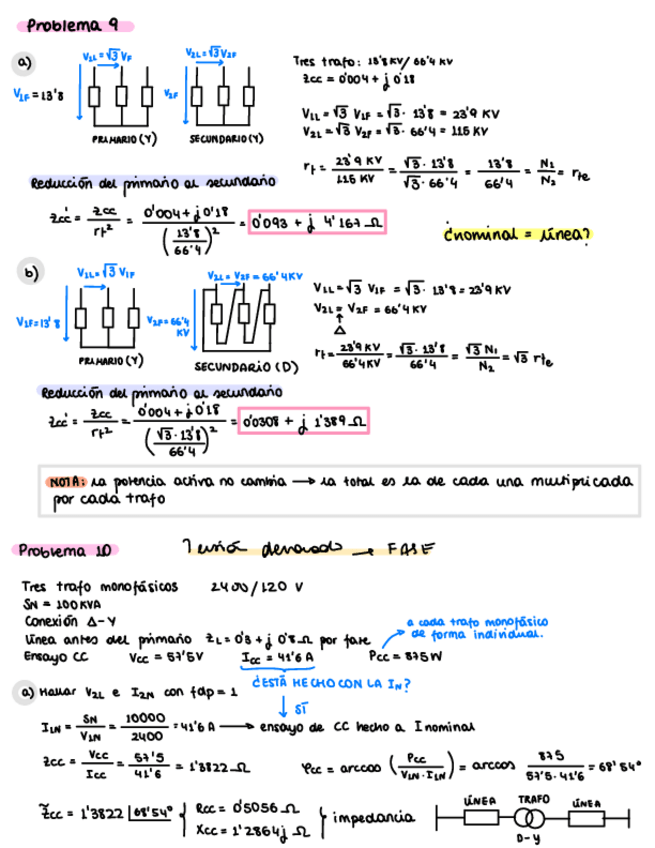 Problema 9
a)
V1L=√3 VF
V2L=√3 V2F
V1F=13'8
V2F
PRIMARIO (Y)
SECUNDARIO (Y)
Tres trafo: 13'8 KV/ 66'4 KV
Zcc = 0'004 + j 0'18
V1L = √3 V1F = √3 · 13'8 = 23'9 KV
V2L = √3 V2F = √3 · 66'4 = 115 KV
rt = 23'9 KV / 115 KV = √3 · 13'8 / √3 · 66'4 = 13'8 / 66'4 = N1 / N2 = rte
Reducción del primario al secundario
Zcc' = Zcc / rt² = 0'004 + j 0'18 / (13'8 / 66'4)² = 0'093 + j 4'167 Ω
¿nominal = línea?
b)
V1L=√3 V1F
V2L = V2F = 66'4KV
V1F=13'8
V2F=66'4 KV
PRIMARIO (Y)
SECUNDARIO (D)
V1L = √3 V1F = √3 · 13'8 = 23'9KV
V2L = V2F = 66'4 KV
Δ
rt = 23'9 KV / 66'4 KV = √3 · 13'8 / 66'4 = √3 N1 / N2 = √3 rte
Reducción del primario al secundario
Zcc' = Zcc / rt² = 0'004 + j 0'18 / (√3 · 13'8 / 66'4)² = 0'0308 + j 1'389 Ω
NOTA: la potencia activa no cambia → la total es la de cada una multiplicada
por cada trafo
Problema 10
Tensión → FASE
Tres trafo monofásicos 2400/120 V
SN = 100KVA
Conexión Δ-Y
línea antes del primario ZL = 0'8 + j 0'8 Ω por fase
a cada trafo monofásico
de forma individual.
Ensayo CC Vcc = 57'5V Icc = 41'6 A Pcc = 875W
¿ESTÁ HECHO CON LA IN?
SÍ
a) Hallar V2L e I2N con fdp = 1
I1N = SN / V1N = 10000 / 2400 = 41'6 A → ensayo de CC hecho a I nominal
Zcc = Vcc / Icc = 57'5 / 41'6 = 1'3822 Ω
φcc = arccos (Pcc / V1N · I1N) = arccos 875 / 57'5 · 41'6 = 68'54°
Z̃cc = 1'3822 |68'54° { Rcc = 0'5056 Ω
Xcc = 1'2864j Ω } impedancia
LÍNEA TRAFO LÍNEA
D-Y